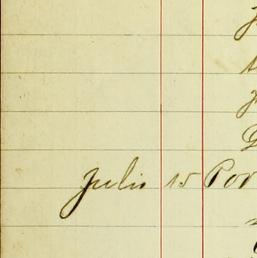 julio 15 Por